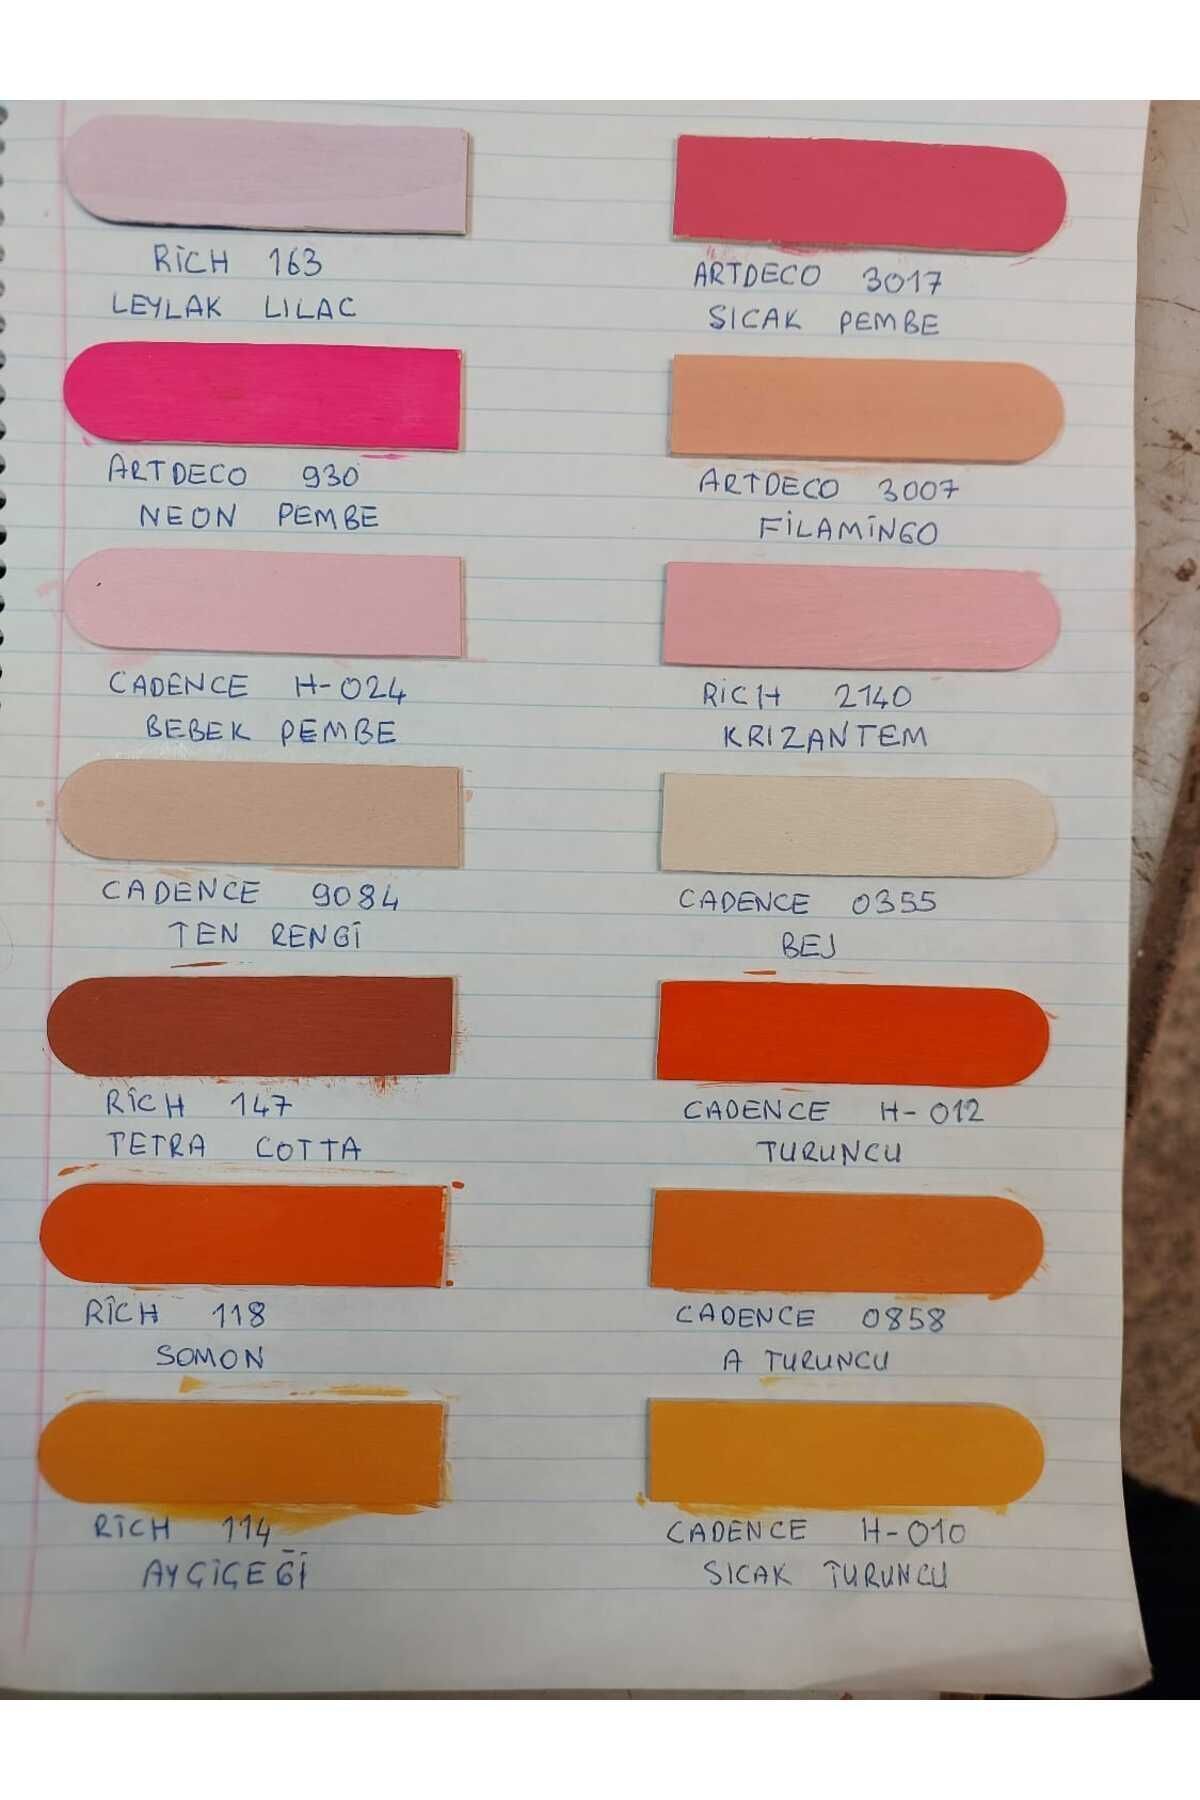 RİCH 163
LEYLAK LILAC
ARTDECO 3017
SICAK PEMBE
ARTDECO 930
NEON PEMBE
ARTDECO 3007
FİLAMİNGO
CADENCE H-024
BEBEK PEMBE
RİCH 2140
KRIZANTEM
CADENCE 9084
TEN RENGİ
CADENCE 0355
BEJ
RİCH 147
TETRA COTTA
CADENCE H-012
TURUNCU
RİCH 118
SOMON
CADENCE 0858
A TURUNCU
RİCH 114
AYÇİÇEĞİ
CADENCE H-010
SICAK TURUNCU